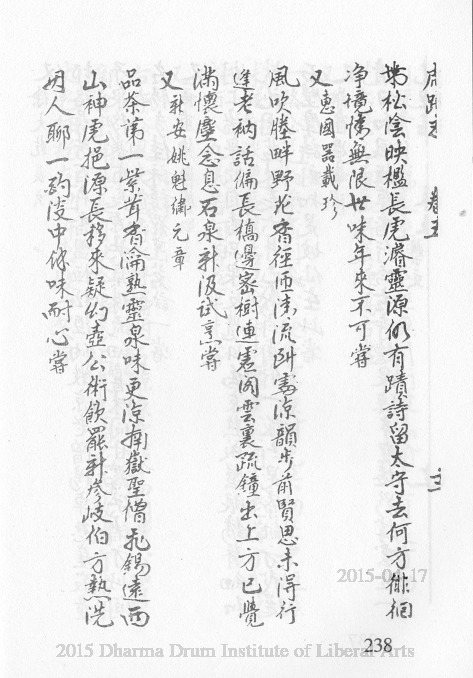 松陰映檻長虎濬靈源仍有蹟詩留太守去何方徘徊
净境情無限世味年來不可嘗
又 惠國器戴珍
風吹塍畔野花香徑匝清流處涼韻步前賢思未得行
逢老衲話偏長橋邊密樹連虛閣雲裏疏鐘出上方已覺
滿懷塵念息石泉新汲試烹嘗
又 新安姚魁儒元章
品茶第一紫茸香瀹熟靈泉味更涼南嶽聖僧飛錫遠西
山神虎挹源長移來疑幻壺公術飲罷新參岐伯方熱洗
人聊一酌淡中餘味耐心嘗
卷五
238
2015 Dharma Drum Institute of Liberal Arts